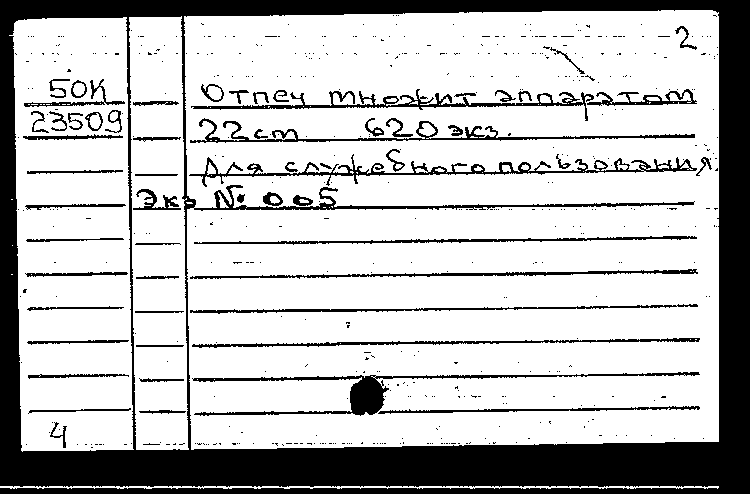 2
50К Отпеч множит аппаратом
23509 22 cm 620 экз.
Для служебного пользования.
Экз № 005
4